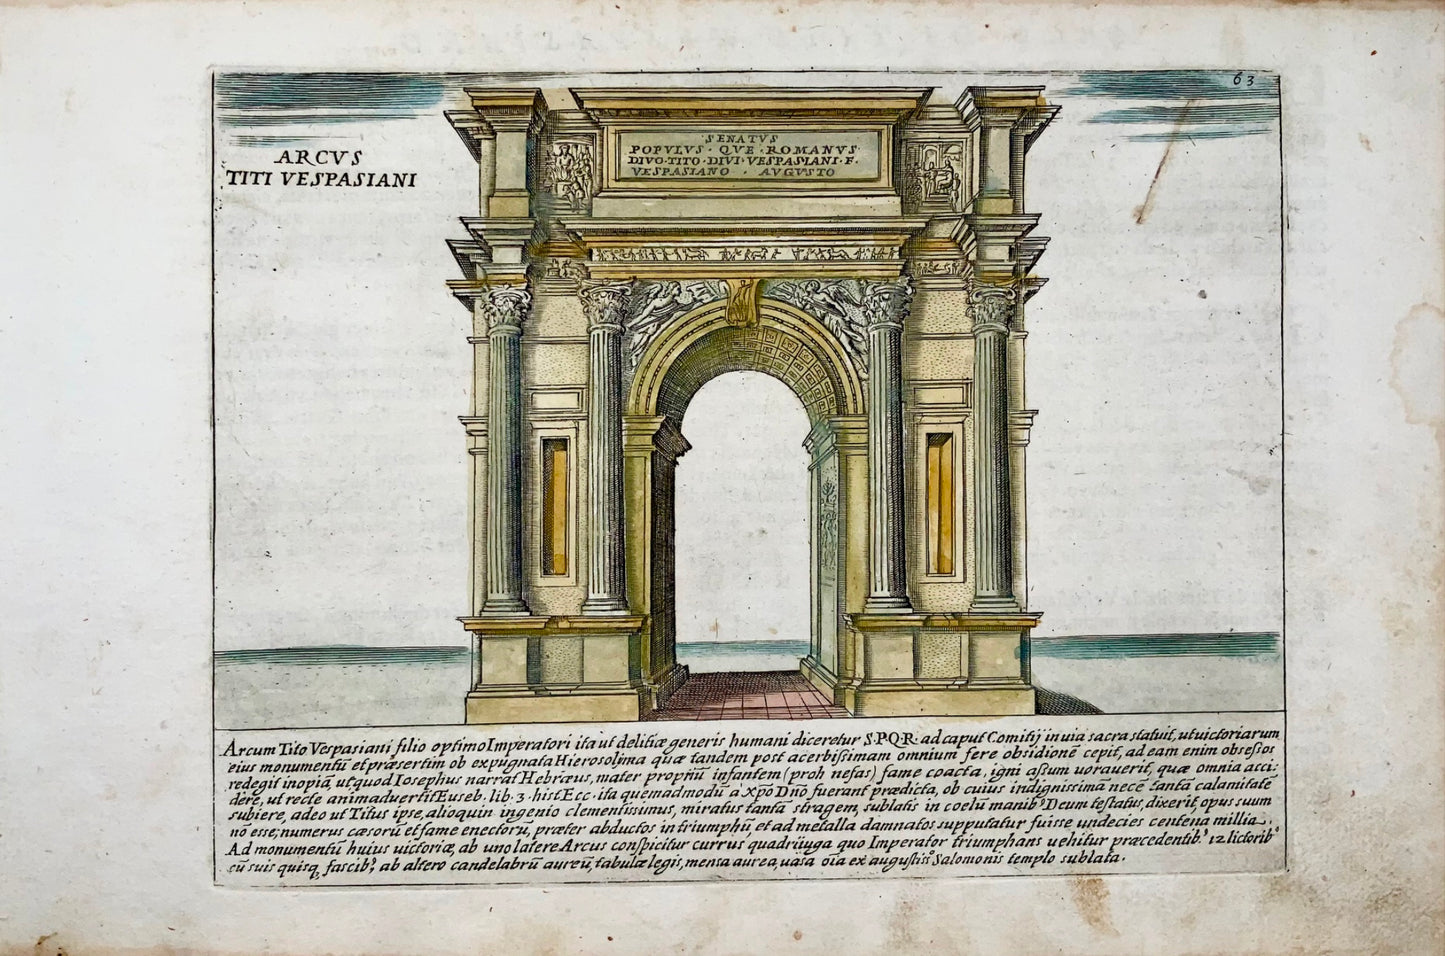 63
ARCVS
TITI VESPASIANI
SENATVS
POPVLVS · QVE · ROMANVS
DIVO · TITO · DIVI · VESPASIANI · F ·
VESPASIANO · AVGVSTO
Arcum Tito Vespasiani filio optimo Imperatori ita ut delitiæ generis humani diceretur S.P.Q.R. ad caput Comitij in via sacra statuit, ut victoriarum
eius monumentū et præsertim ob expugnata Hierosolima quæ tandem post acerbissimam omnium fere obsidionē cepit, ad eam enim obsessos
redegit inopiā, ut quod Iosephus narrat Hebræus, mater propriū infantem (proh nefas) fame coacta, igni assum vorauerit, quæ omnia acci:
dere, ut recte animadvertit Euseb. lib. 3. hist. Ecc. ita quemadmodū à Xp̄o Dño fuerant prædicta, ob cuius indignissima necē tantā calamitatē
subiere, adeo ut Titus ipse, alioquin ingenio clementissimus, miratus tantā stragem, sublatis in coelū manib⁹ Deum testatus, dixerit, opus suum
nō esse; numerus cæsorū et fame enectorū, præter abductos in triumphū, et ad metalla damnatos supputatur fuisse undecies centena millia.
Ad monumentū huius victoriæ, ab uno latere Arcus conspicitur currus quadriiuga quo Imperator triumphans vehitur præcedentib⁹ 12 lictorib⁹
cū suis quisq; fascib⁹, ab altero candelabrū aureū, tabulæ legis, mensa aurea, vasa oīa ex augustis⁰ Salomonis templo sublata.